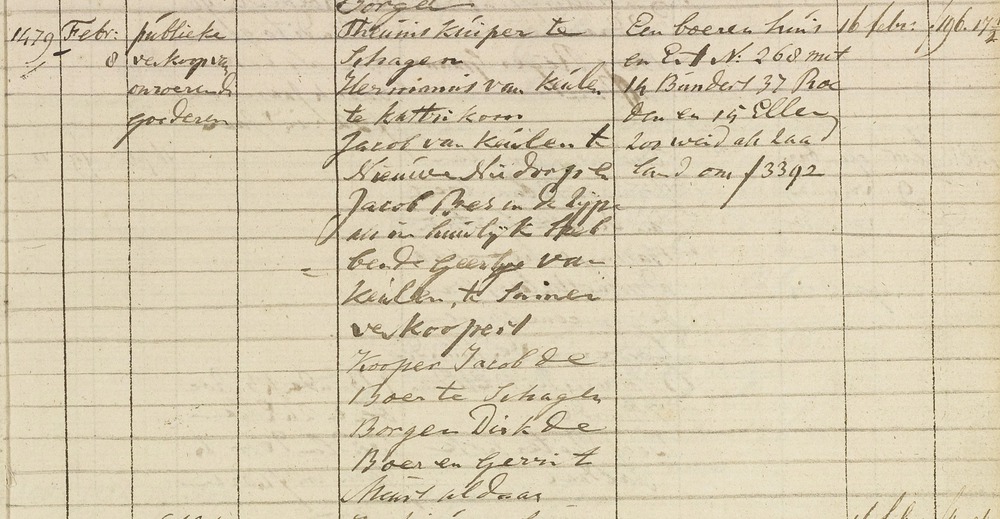 Borgen
1479 Febr: 8
publieke
verkoop van
onroerende
goederen
Theunis Kuiper te
Schagen
Hermanus van Kuilen
te Kattis koorn
Jacob van Kuilen te
Nieuwe Niedorp en
Jacob Bres in de Zijpe
als in huwlijk heb
bende Geertje van
Kuilen, te samen
verkoopers
Kooper Jacob de
Boer te Schagen
Borgen Dirk de
Boer en Gerrit
Muis aldaar
Een boeren huis
en Erf No. 268 met
14 Bunders 37 Roe
den en 15 Ellen
zoo weid als zaad
land om ƒ 3392
16 febr: ƒ 196. 17½